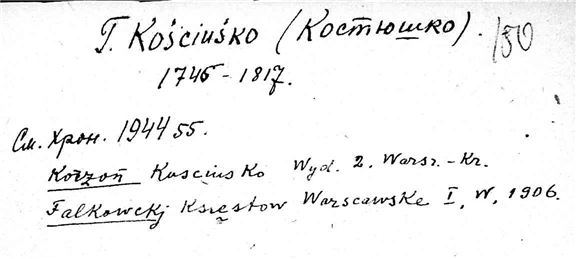 T. Kościuśko (Костюшко).
150
1746 - 1817.
См. Хрон. 1944 55.
Korzoń Kusciusko Wyd. 2. Warsz. - Kr.
Falkowckj Księstow Warscawske I, W, 1906.